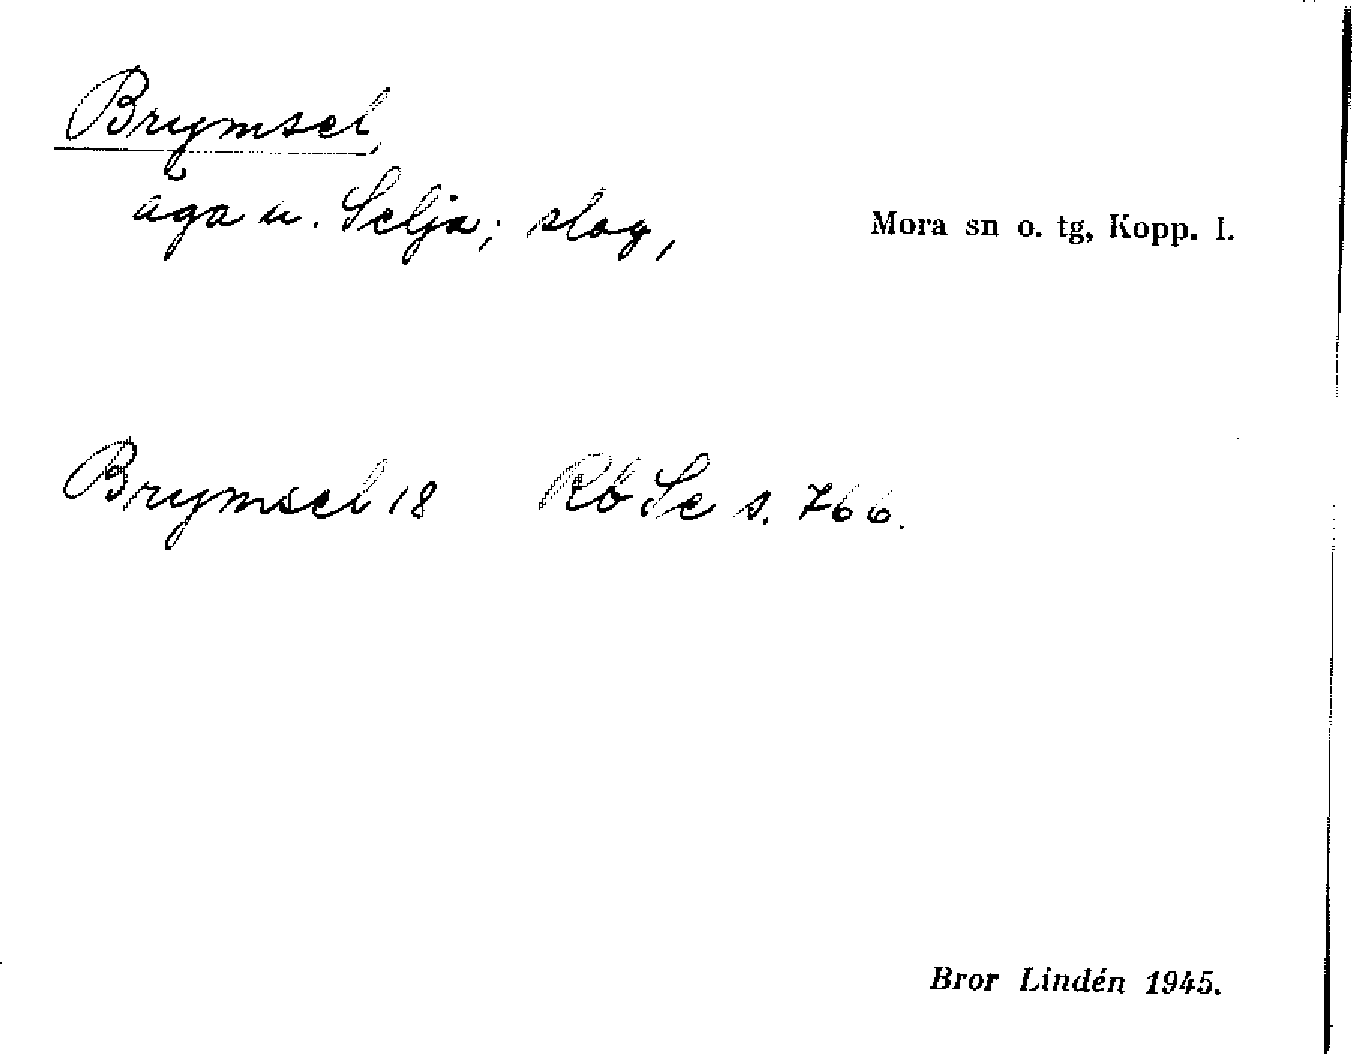 Brymsel
äga u. Selja; slog,
Mora sn o. tg, Kopp. l.
Brymsel 18 Rb Se s. 766.
Bror Lindén 1945.